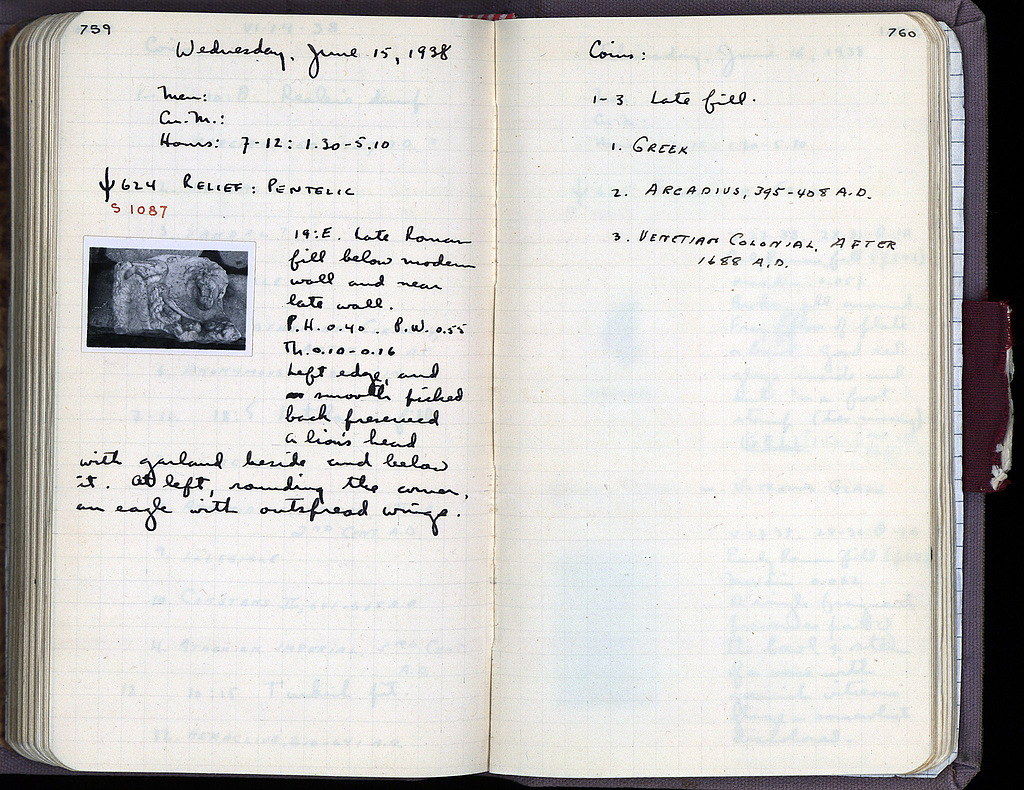 759
Wednesday, June 15, 1938
Men:
Cu. M.:
Hours: 7-12: 1.30-5.10
ψ 624 RELIEF: PENTELIC
S 1087
19:E. Late Roman
fill below modern
wall and near
late wall.
P.H. 0.40. P.W. 0.55
Th. 0.10-0.16
Left edge, and
smooth picked
back preserved
a lion's head
with garland beside and below
it. At left, rounding the corner,
an eagle with outspread wings.
760
Coins:
1-3 Late fill.
1. GREEK
2. ARCADIUS, 395-408 A.D.
3. VENETIAN COLONIAL, AFTER
1688 A.D.